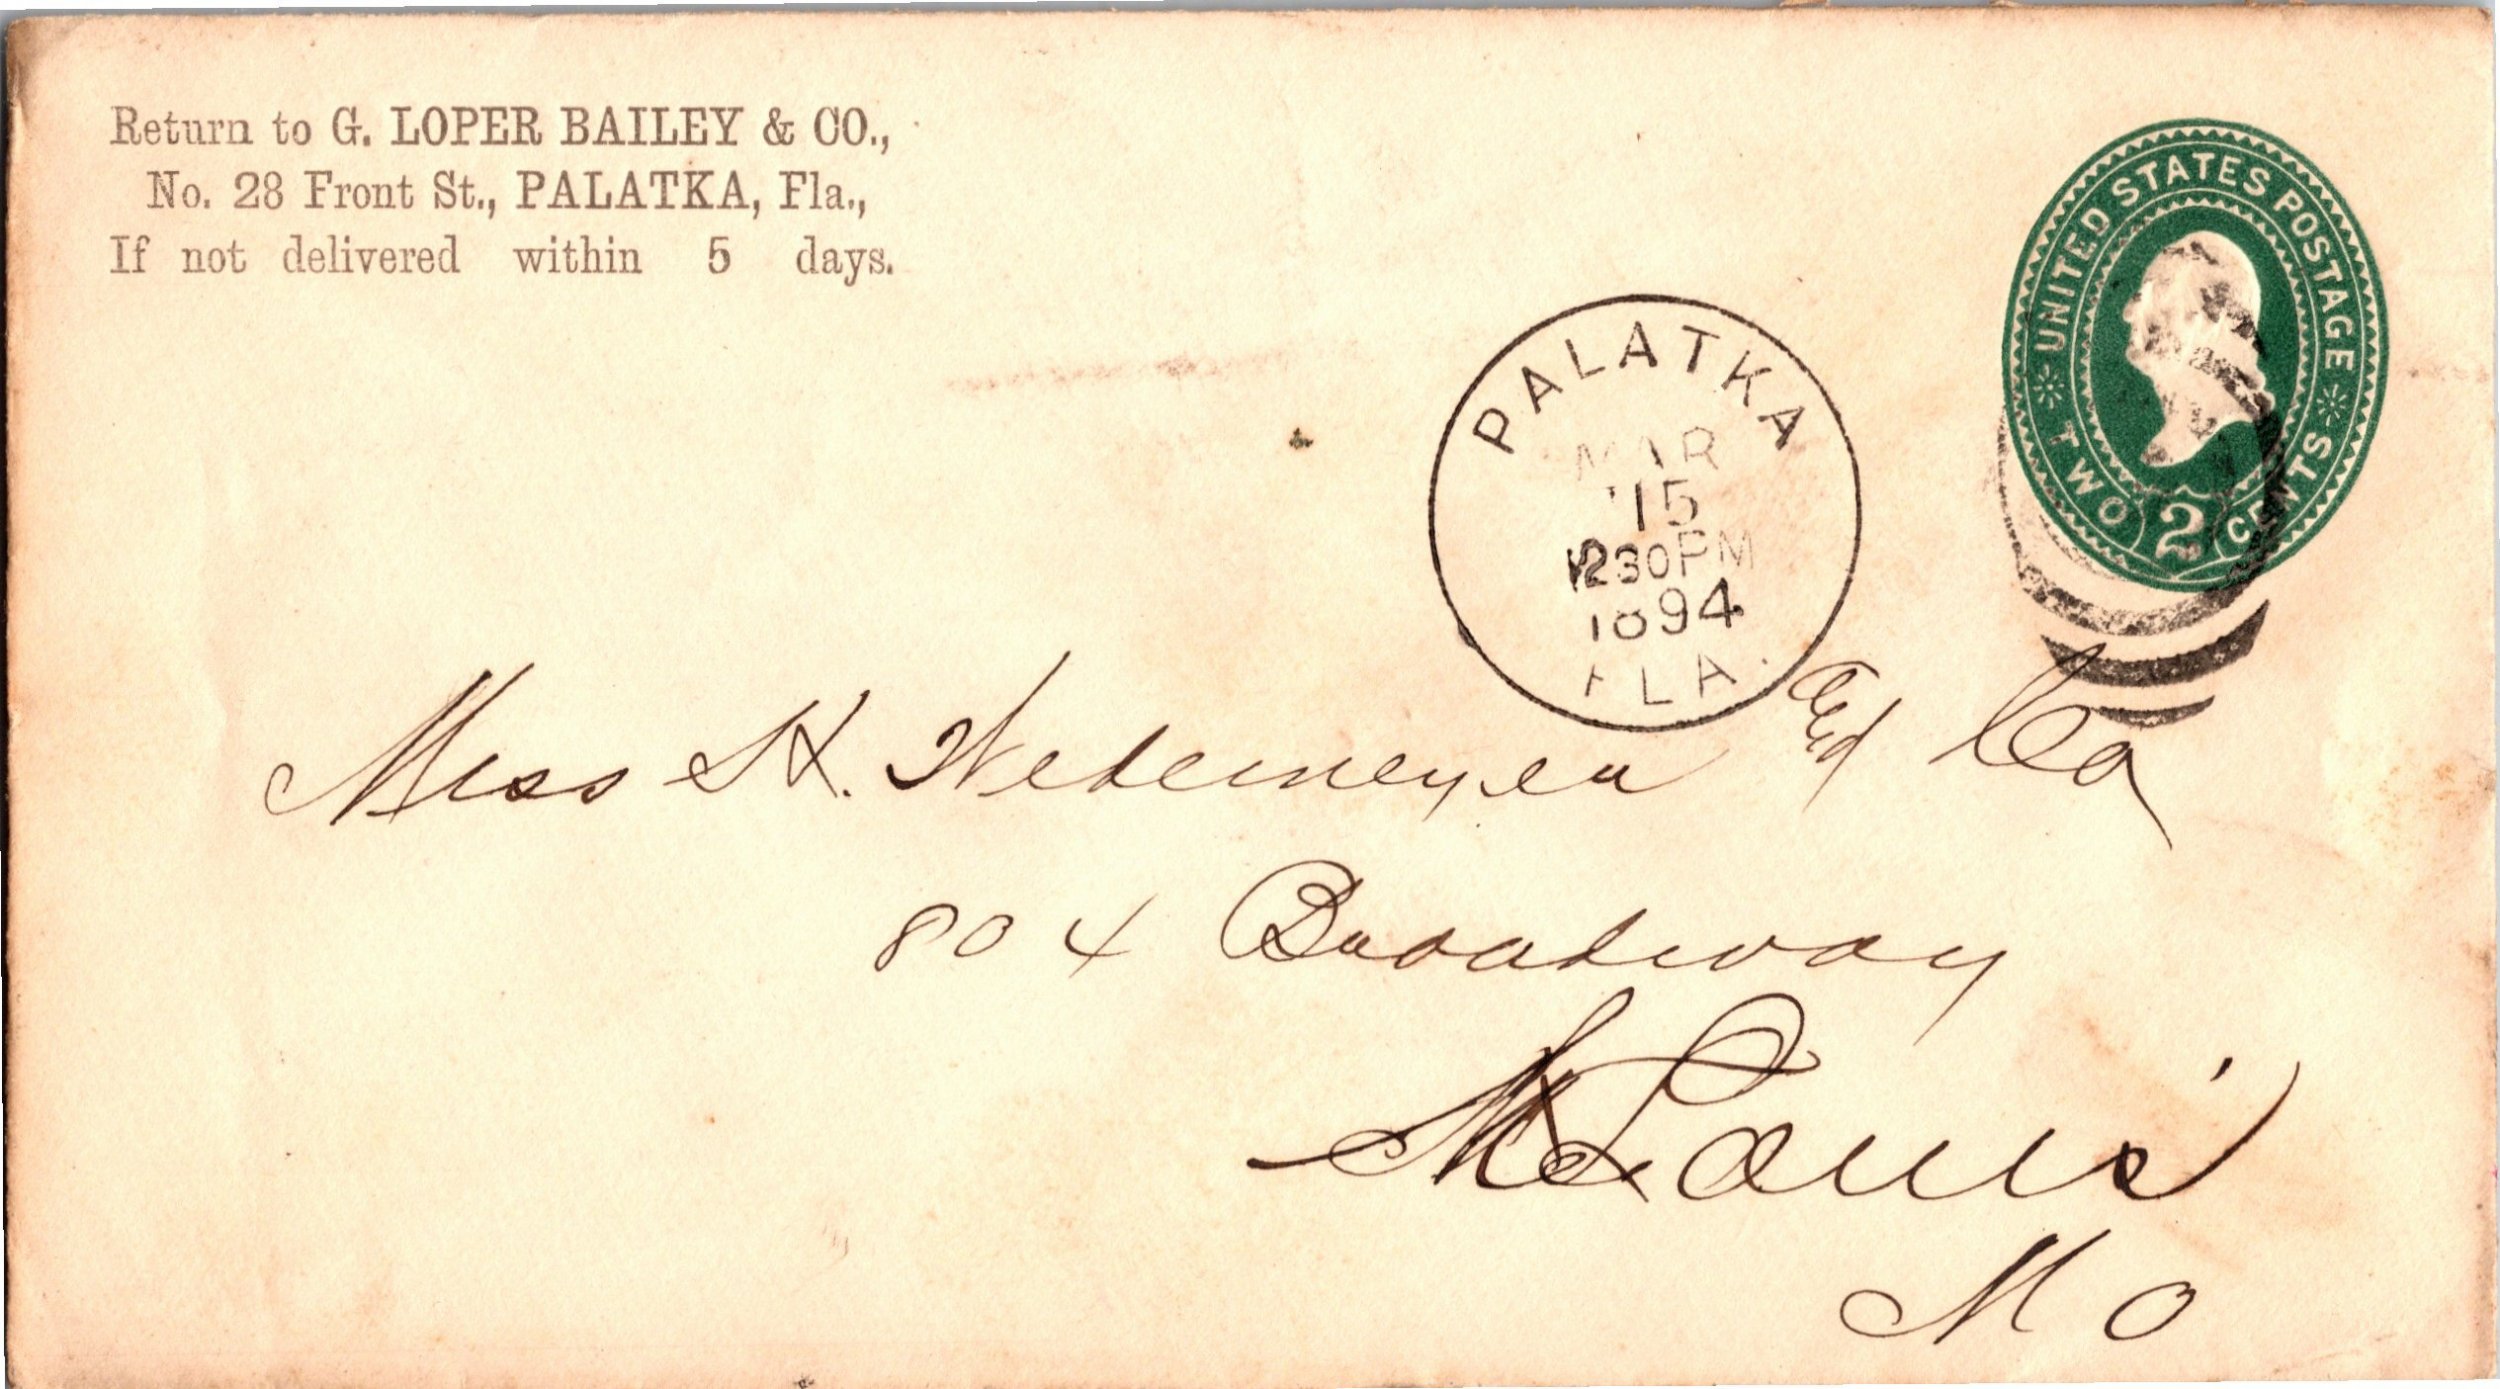 Return to G. LOPER BAILEY & CO.,
No. 28 Front St., PALATKA, Fla.,
If not delivered within 5 days.
UNITED STATES POSTAGE
TWO 2 CENTS
PALATKA
MAR
15
1230PM
1894
FLA.
Miss H. and Co
804 Broadway
St Louis
Mo